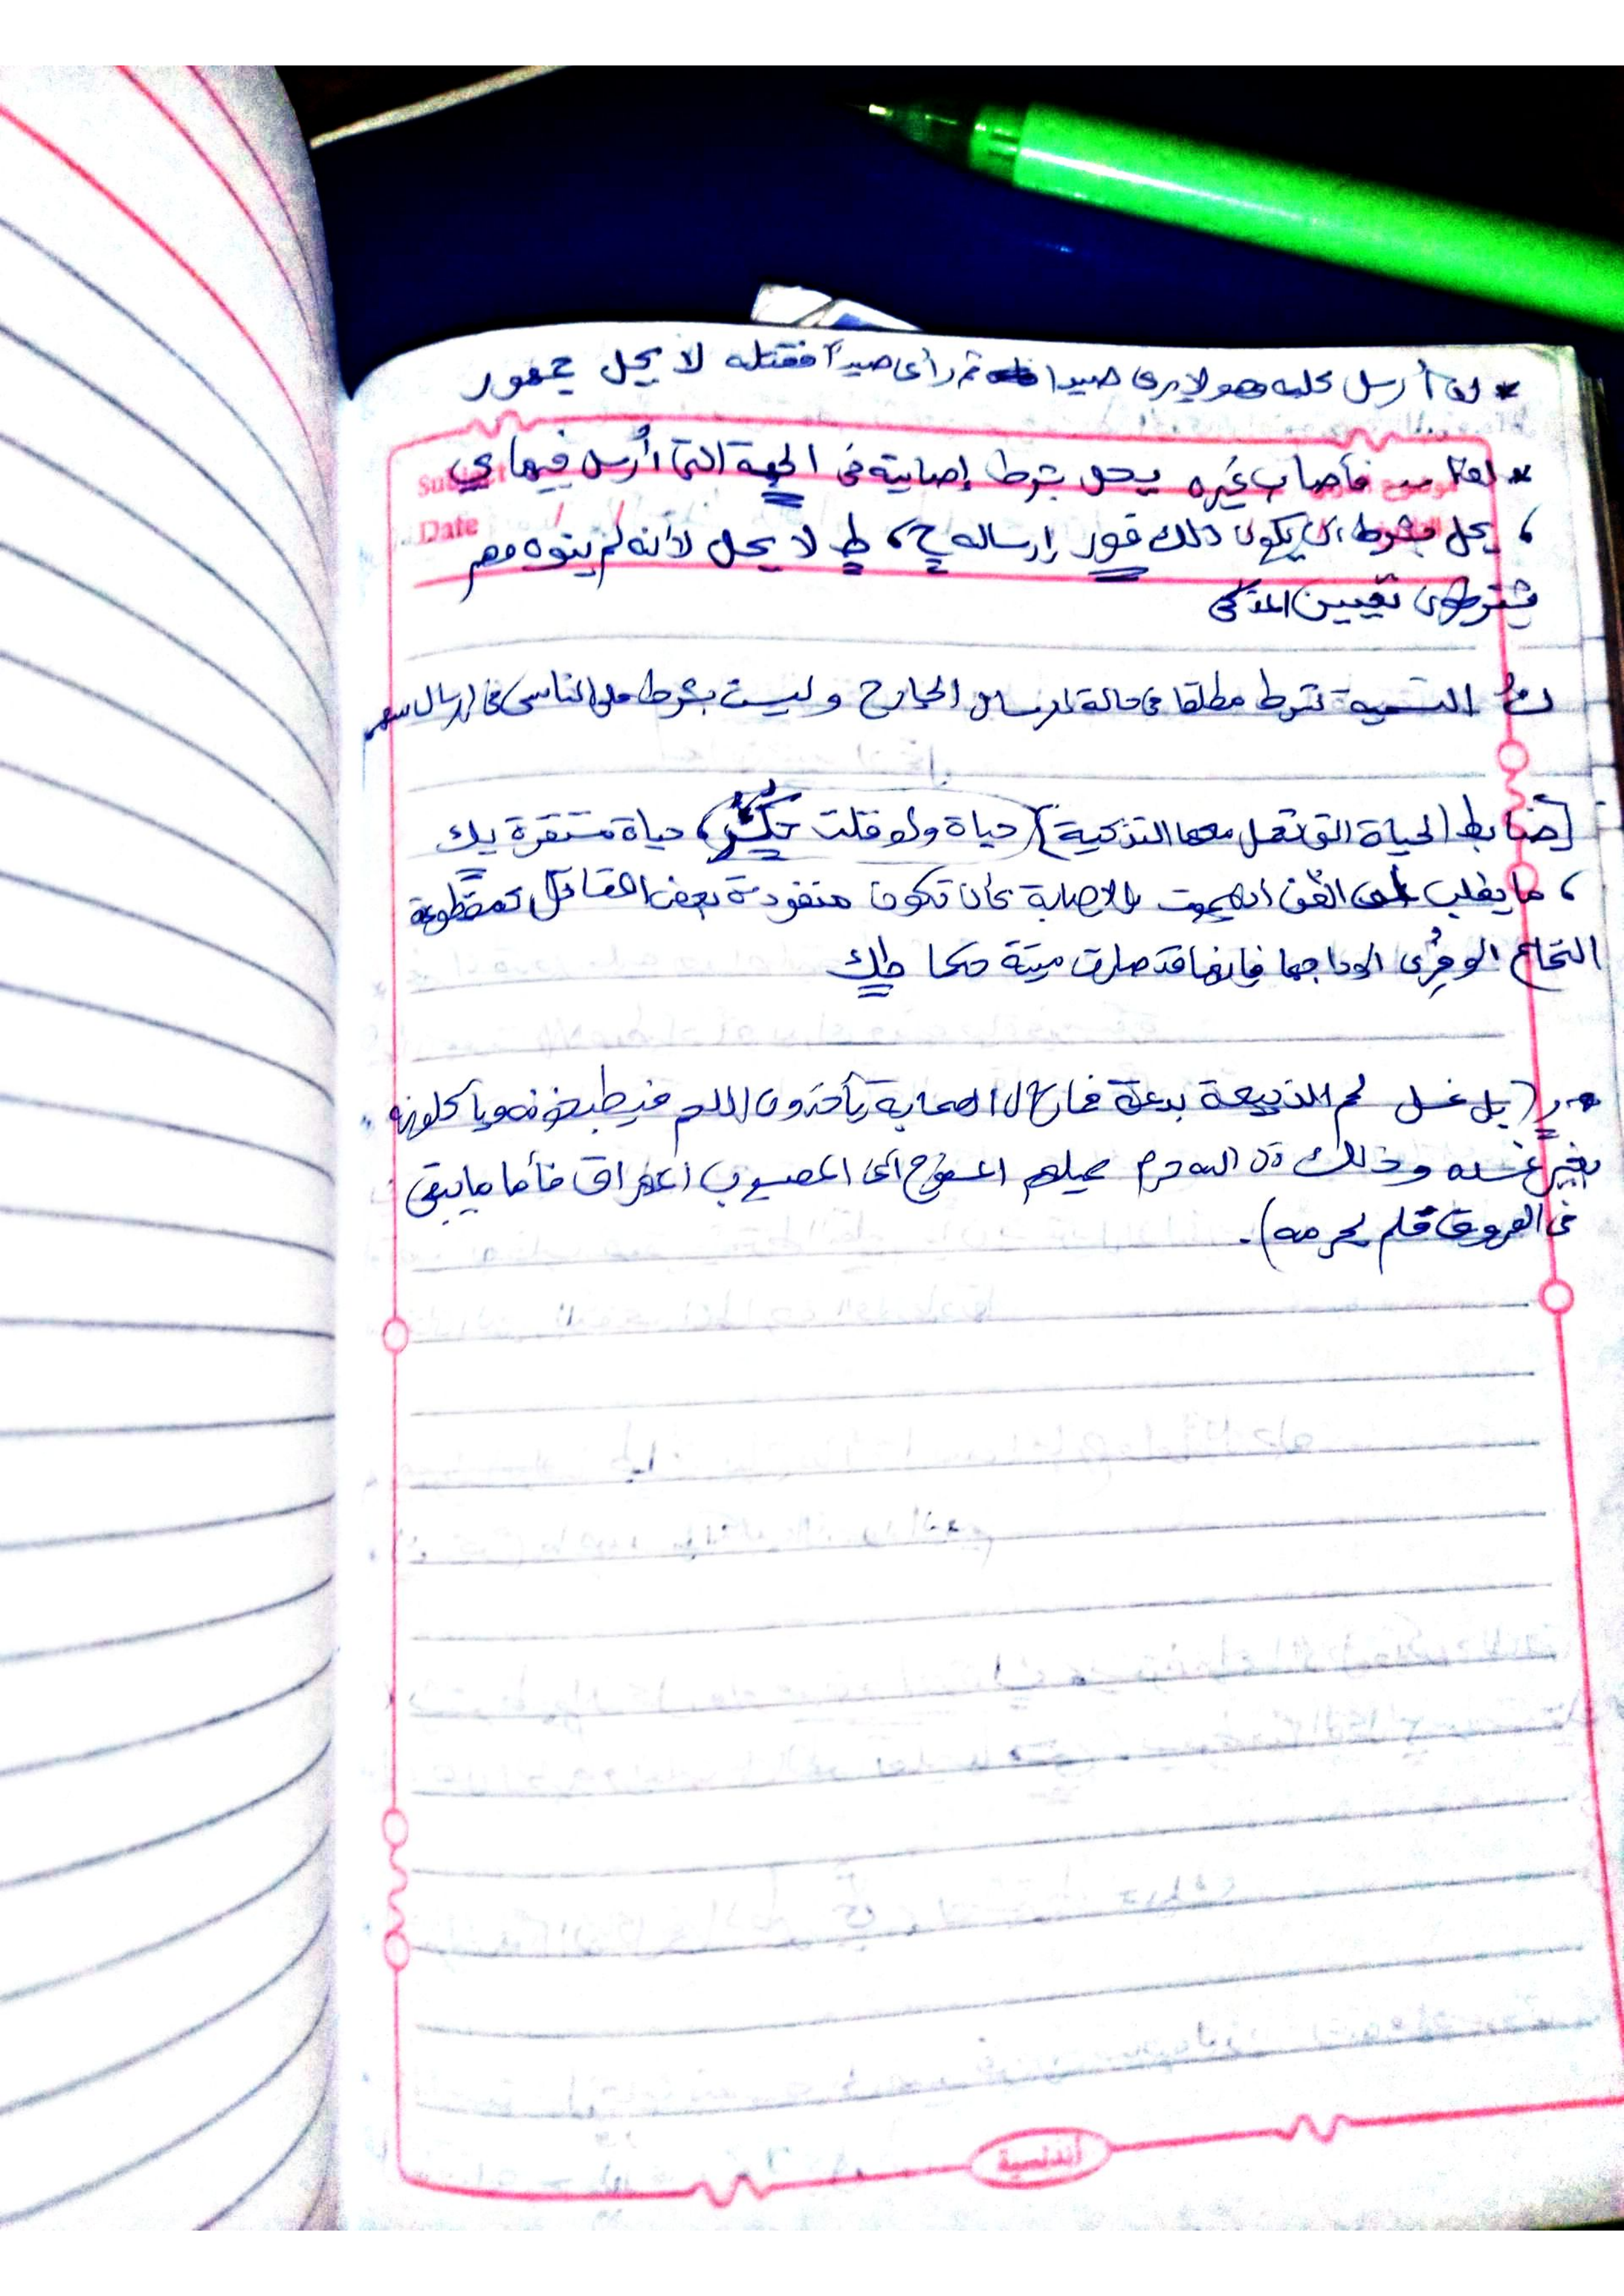 * لو أرسل كلبه وهو لا يرى صيدا ثم رأى صيداً فقتله لا يحل جمهور
* لو فأصاب غيره يحل بشرط إصابته فى الجهة التى أرسل فيها ي
Subject
، يحل بشرط أن يكون ذلك فور إرساله ح، ط لا يحل لأنه لم ينوه وهم
Date
يشترطون تعيين المذكى
التسمية تشترط مطلقا فى حالة إرسال الجارح وليست بشرط على الناسى فى إرسال سهم
[ضابط الحياة التى تعمل معها التذكية] حياة ولو قلت ، حياة مستقرة يك
، ما يغلب على الظن أنه يموت بالإصابة كأن تكون منفوذة بعض المقاتل كمقطوعة
النخاع أو فرى أوداجها فإنها قد صارت ميتة حكما طك
(بل غسل لحم الذبيحة بدعة فمازال الصحابة يأخذون اللحم فيطبخونه ويأكلونه
بغير غسله وذلك أن الله حرم عليهم المسفوح أى المصبوب المهراق فأما ما يبقى
فى العروق فلم يحرمه).
أندلسية